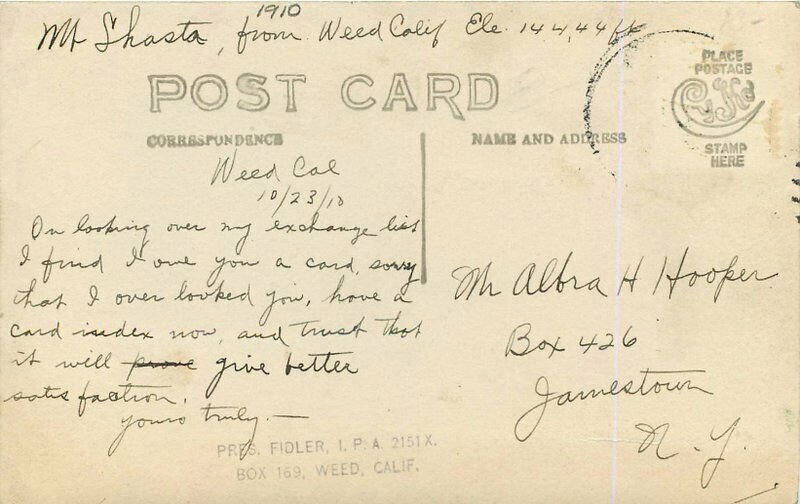 1910
Mt Shasta, from Weed Calif Ele 144,44 ft
PLACE
POSTAGE
STAMP
HERE
POST CARD
CORRESPONDENCE
NAME AND ADDRESS
Weed Cal
10/23/10
On looking over my exchange list
I find I owe you a card, sorry
that I over looked you, have a
card index now, and trust that
it will prove give better
satisfaction.
yours truly.—
PRES. FIDLER, I.P.A. 2151X.
BOX 169, WEED, CALIF.
Mr Albra H Hooper
Box 426
Jamestown
N. Y.